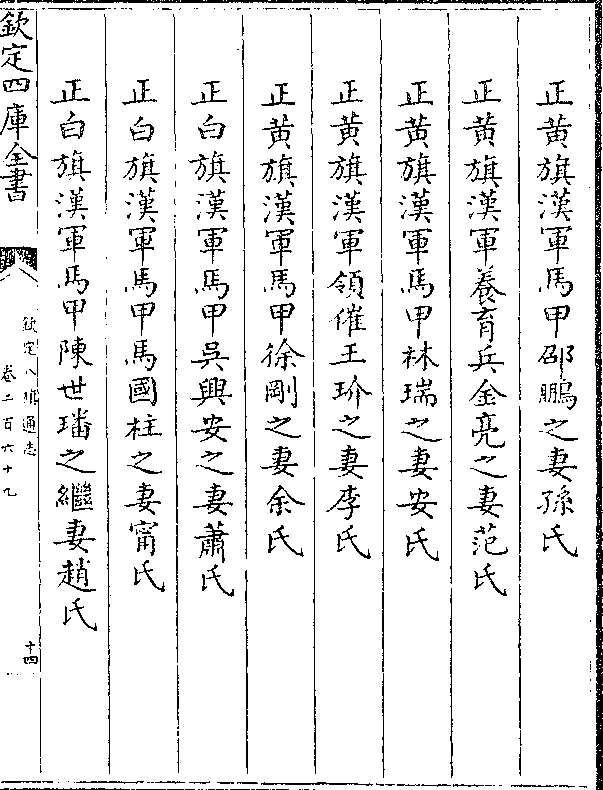 正黄旗漢軍馬甲邵鵬之妻孫氏
正黄旗漢軍養育兵金亮之妻范氏
正黄旗漢軍馬甲林瑞之妻安氏
正黄旗漢軍領催王玠之妻李氏
正黄旗漢軍馬甲徐剛之妻余氏
正白旗漢軍馬甲吳興安之妻蕭氏
正白旗漢軍馬甲馬國柱之妻甯氏
正白旗漢軍馬甲陳世璠之繼妻趙氏
欽定四庫全書
欽定八旗通志
卷二百六十九
十四